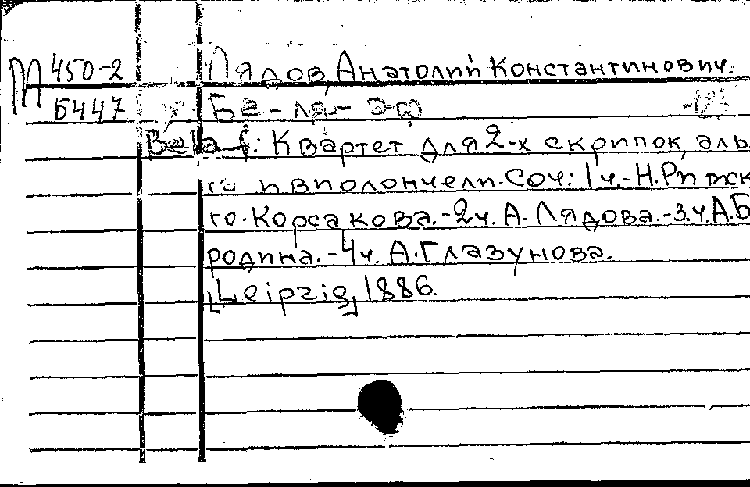 М 450-2 Лядов, Анатолий Константинович.
Б447 Бе-ля-эф
Belaf: Квартет для 2-х скрипок, аль
та и виолончели. Соч: 1ч.-Н.Римск
го-Корсакова.-2ч. А.Лядова.-3.ч.А.Б
родина.-4ч. А.Глазунова.
[Leipzig] 1886.